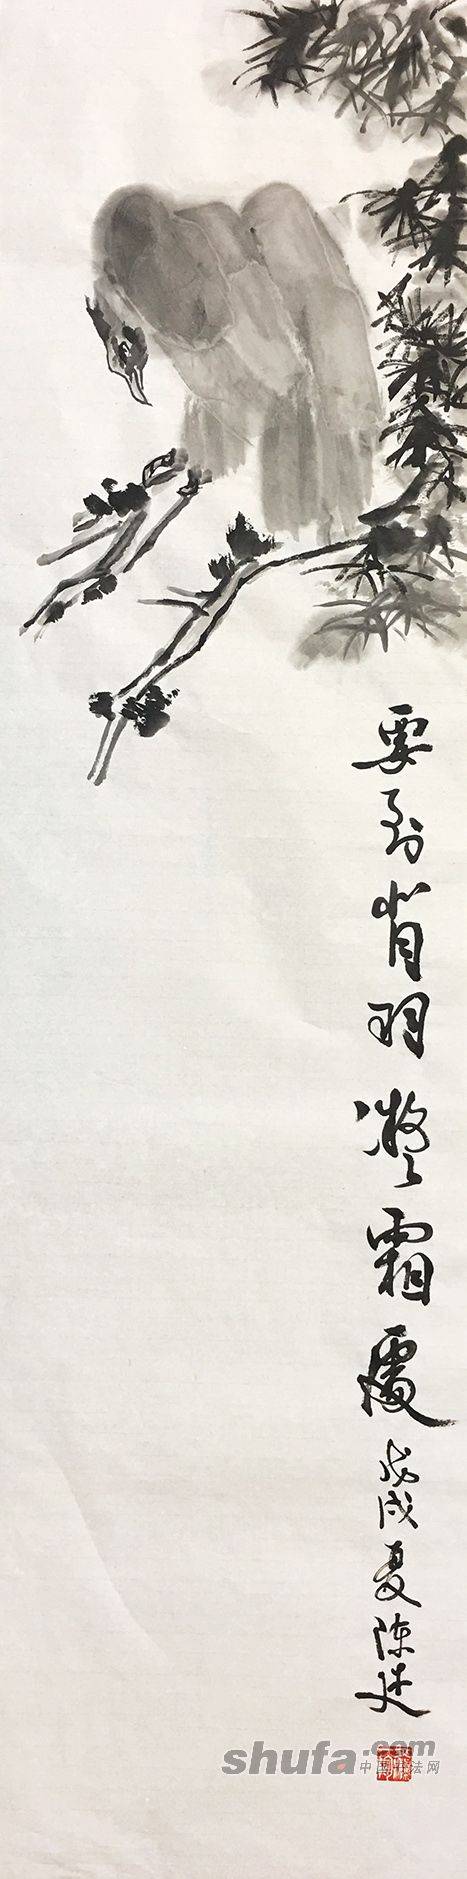 要到肖羽凝霜處 戊戌夏陈廷
shufa.com
中国书法网